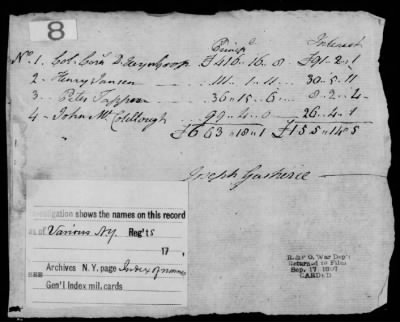 8
Princip.l Interest
No. 1. Col. Corn. D. Wynkoop £416.16.8 £91.2.1
2 Henry Jansen 111.1.11 30.5.11
3 Peter Tappen 36.15.6 8.2.4
4 John McColellough 99.4.0 26.4.1
£663.18.1 £155.14.5
Joseph Gasherie
Investigation shows the names on this record
as of Various N.Y. Reg'ts
17 ,
Archives N. Y. page Index of names
SEE
Gen'l Index mil. cards
R. & P. O. War Dep't
Returned to Files
Sep. 17 1897
CARDED